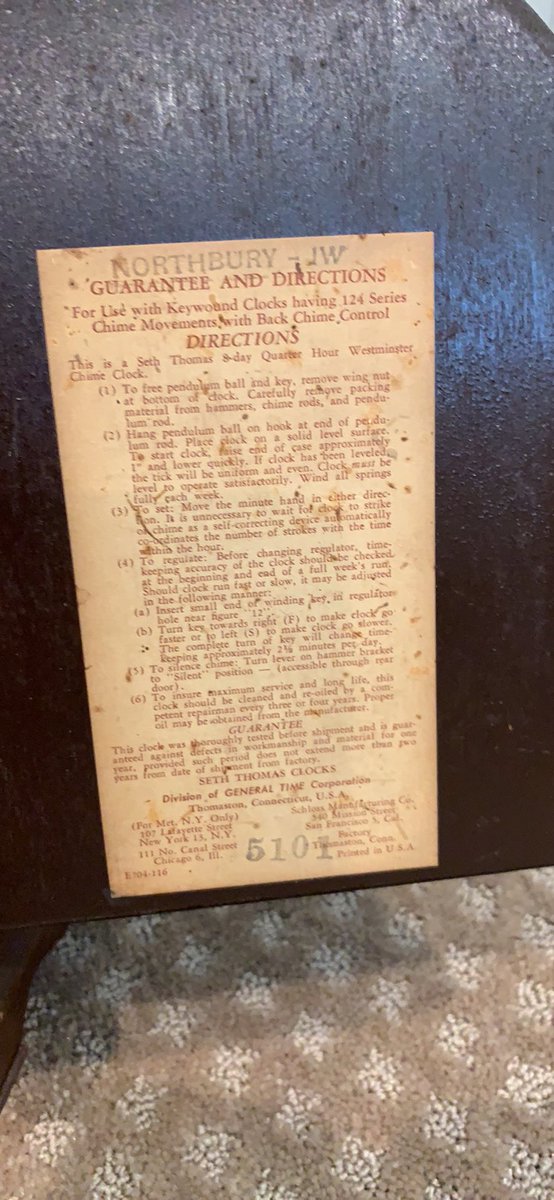 NORTHBURY - IW
GUARANTEE AND DIRECTIONS
For Use with Keywound Clocks having 124 Series
Chime Movements with Back Chime Control
DIRECTIONS
This is a Seth Thomas 8-day Quarter Hour Westminster
Chime Clock.
(1) To free pendulum ball and key, remove wing nut
at bottom of clock. Carefully remove packing
material from hammers, chime rods, and pendu-
lum rod.
(2) Hang pendulum ball on hook at end of pendu-
lum rod. Place clock on a solid level surface.
To start clock, raise end of case approximately
1" and lower quickly. If clock has been leveled,
the tick will be uniform and even. Clock must be
level to operate satisfactorily. Wind all springs
fully each week.
(3) To set: Move the minute hand in either direc-
tion. It is unnecessary to wait for clock to strike
or chime as a self-correcting device automatically
co-ordinates the number of strokes with the time
within the hour.
(4) To regulate: Before changing regulator, time-
keeping accuracy of the clock should be checked
at the beginning and end of a full week's run.
Should clock run fast or slow, it may be adjusted
in the following manner:
(a) Insert small end of winding key in regulator
hole near figure "12".
(b) Turn key towards right (F) to make clock go
faster or to left (S) to make clock go slower.
The complete turn of key will change time-
keeping approximately 2½ minutes per day.
(5) To silence chime: Turn lever on hammer bracket
to "Silent" position — (accessible through rear
door).
(6) To insure maximum service and long life, this
clock should be cleaned and re-oiled by a com-
petent repairman every three or four years. Proper
oil may be obtained from the manufacturer.
GUARANTEE
This clock was thoroughly tested before shipment and is guar-
anteed against defects in workmanship and material for one
year, provided such period does not extend more than two
years from date of shipment from factory.
SETH THOMAS CLOCKS
Division of GENERAL TIME Corporation
Thomaston, Connecticut, U.S.A.
(For Met. N.Y. Only)
107 Lafayette Street
New York 13, N.Y.
111 No. Canal Street
Chicago 6, Ill.
Schloss Manufacturing Co.
540 Mission Street
San Francisco 5, Cal.
Factory
Thomaston, Conn.
Printed in U.S.A.
5101
E204-116